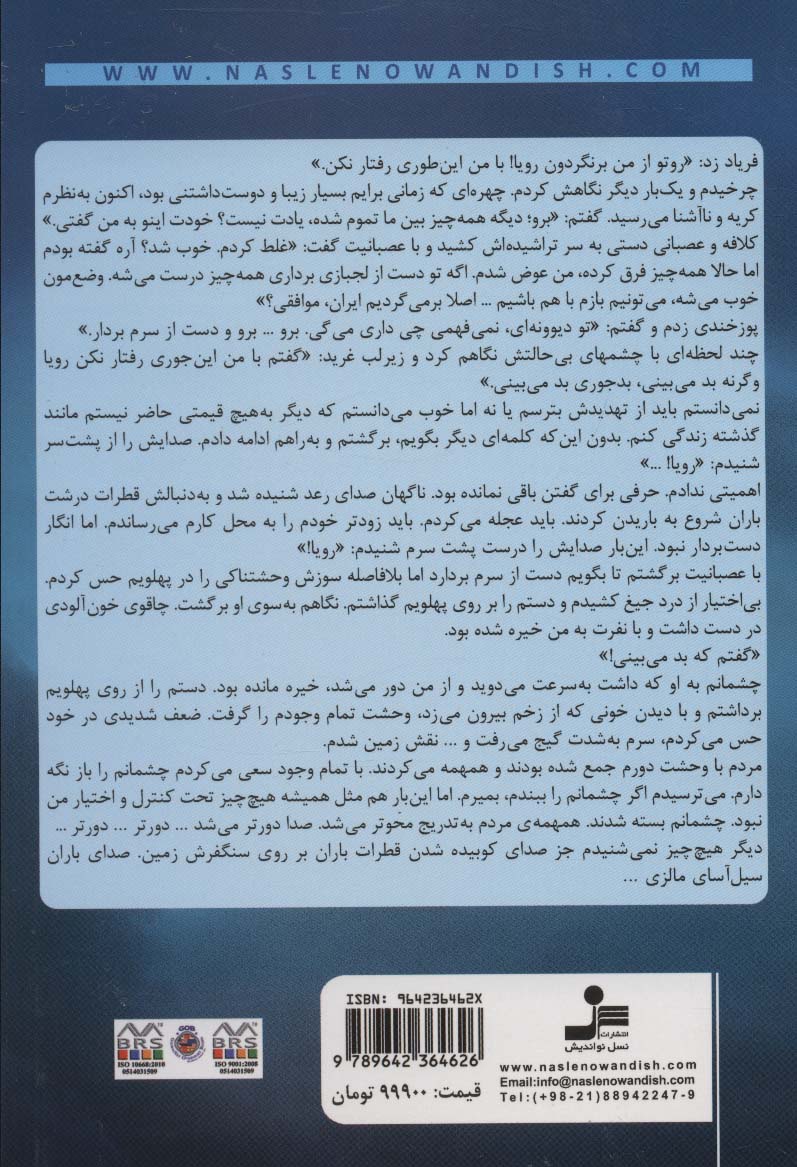 WWW.NASLENOWANDISH.COM
فریاد زد: «روتو از من برنگردون رویا! با من این‌طوری رفتار نکن.»
چرخیدم و یک‌بار دیگر نگاهش کردم. چهره‌ای که زمانی برایم بسیار زیبا و دوست‌داشتنی بود، اکنون به‌نظرم
کریه و ناآشنا می‌رسید. گفتم: «برو؛ دیگه همه‌چیز بین ما تموم شده، یادت نیست؟ خودت اینو به من گفتی.»
کلافه و عصبانی دستی به سر تراشیده‌اش کشید و با عصبانیت گفت: «غلط کردم. خوب شد؟ آره گفته بودم
اما حالا همه‌چیز فرق کرده، من عوض شدم. اگه تو دست از لجبازی برداری همه‌چیز درست می‌شه. وضع‌مون
خوب می‌شه، می‌تونیم بازم با هم باشیم ... اصلا برمی‌گردیم ایران، موافقی؟»
پوزخندی زدم و گفتم: «تو دیوونه‌ای، نمی‌فهمی چی داری می‌گی. برو ... برو و دست از سرم بردار.»
چند لحظه‌ای با چشمهای بی‌حالتش نگاهم کرد و زیرلب غرید: «گفتم با من این‌جوری رفتار نکن رویا
وگرنه بد می‌بینی، بدجوری بد می‌بینی.»
نمی‌دانستم باید از تهدیدش بترسم یا نه اما خوب می‌دانستم که دیگر به‌هیچ قیمتی حاضر نیستم مانند
گذشته زندگی کنم. بدون این‌که کلمه‌ای دیگر بگویم، برگشتم و به‌راهم ادامه دادم. صدایش را از پشت‌سر
شنیدم: «رویا! ...»
اهمیتی ندادم. حرفی برای گفتن باقی نمانده بود. ناگهان صدای رعد شنیده شد و به‌دنبالش قطرات درشت
باران شروع به باریدن کردند. باید عجله می‌کردم. باید زودتر خودم را به محل کارم می‌رساندم. اما انگار
دست‌بردار نبود. این‌بار صدایش را درست پشت سرم شنیدم: «رویا!»
با عصبانیت برگشتم تا بگویم دست از سرم بردارد اما بلافاصله سوزش وحشتناکی را در پهلویم حس کردم.
بی‌اختیار از درد جیغ کشیدم و دستم را بر روی پهلویم گذاشتم. نگاهم به‌سوی او برگشت. چاقوی خون‌آلودی
در دست داشت و با نفرت به من خیره شده بود.
«گفتم که بد می‌بینی!»
چشمانم به او که داشت به‌سرعت می‌دوید و از من دور می‌شد، خیره مانده بود. دستم را از روی پهلویم
برداشتم و با دیدن خونی که از زخم بیرون می‌زد، وحشت تمام وجودم را گرفت. ضعف شدیدی در خود
حس می‌کردم، سرم به‌شدت گیج می‌رفت و ... نقش زمین شدم.
مردم با وحشت دورم جمع شده بودند و همهمه می‌کردند. با تمام وجود سعی می‌کردم چشمانم را باز نگه
دارم. می‌ترسیدم اگر چشمانم را ببندم، بمیرم. اما این‌بار هم مثل همیشه هیچ‌چیز تحت کنترل و اختیار من
نبود. چشمانم بسته شدند. همهمه‌ی مردم به‌تدریج محوتر می‌شد. صدا دورتر می‌شد ... دورتر ... دورتر ...
دیگر هیچ‌چیز نمی‌شنیدم جز صدای کوبیده شدن قطرات باران بر روی سنگفرش زمین. صدای باران
سیل‌آسای مالزی ...
ISBN: 964236462X
9 789642 364626
قیمت: ۹۹۹۰۰ تومان
انتشارات
نسل نواندیش
www.naslenowandish.com
Email:info@naslenowandish.com
Tel:(+98-21)88942247-9
BRS
ISO 10668:2010
0514031509
GOB
BRS
ISO 9001:2008
0514031509